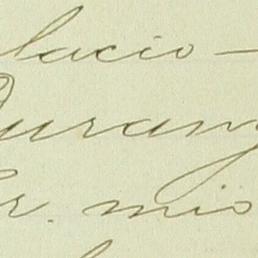 lacio —
Durang
Sr. mio